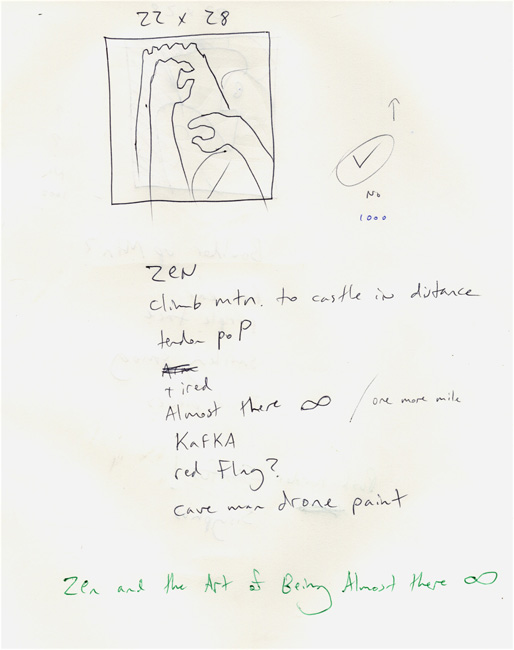 22 x 28
No
1000
ZEN
climb mtn. to castle in distance
tendon pop
tired
Almost there ∞ / one more mile
KAFKA
red Flag?
cave man drone paint
Zen and the Art of Being Almost there ∞